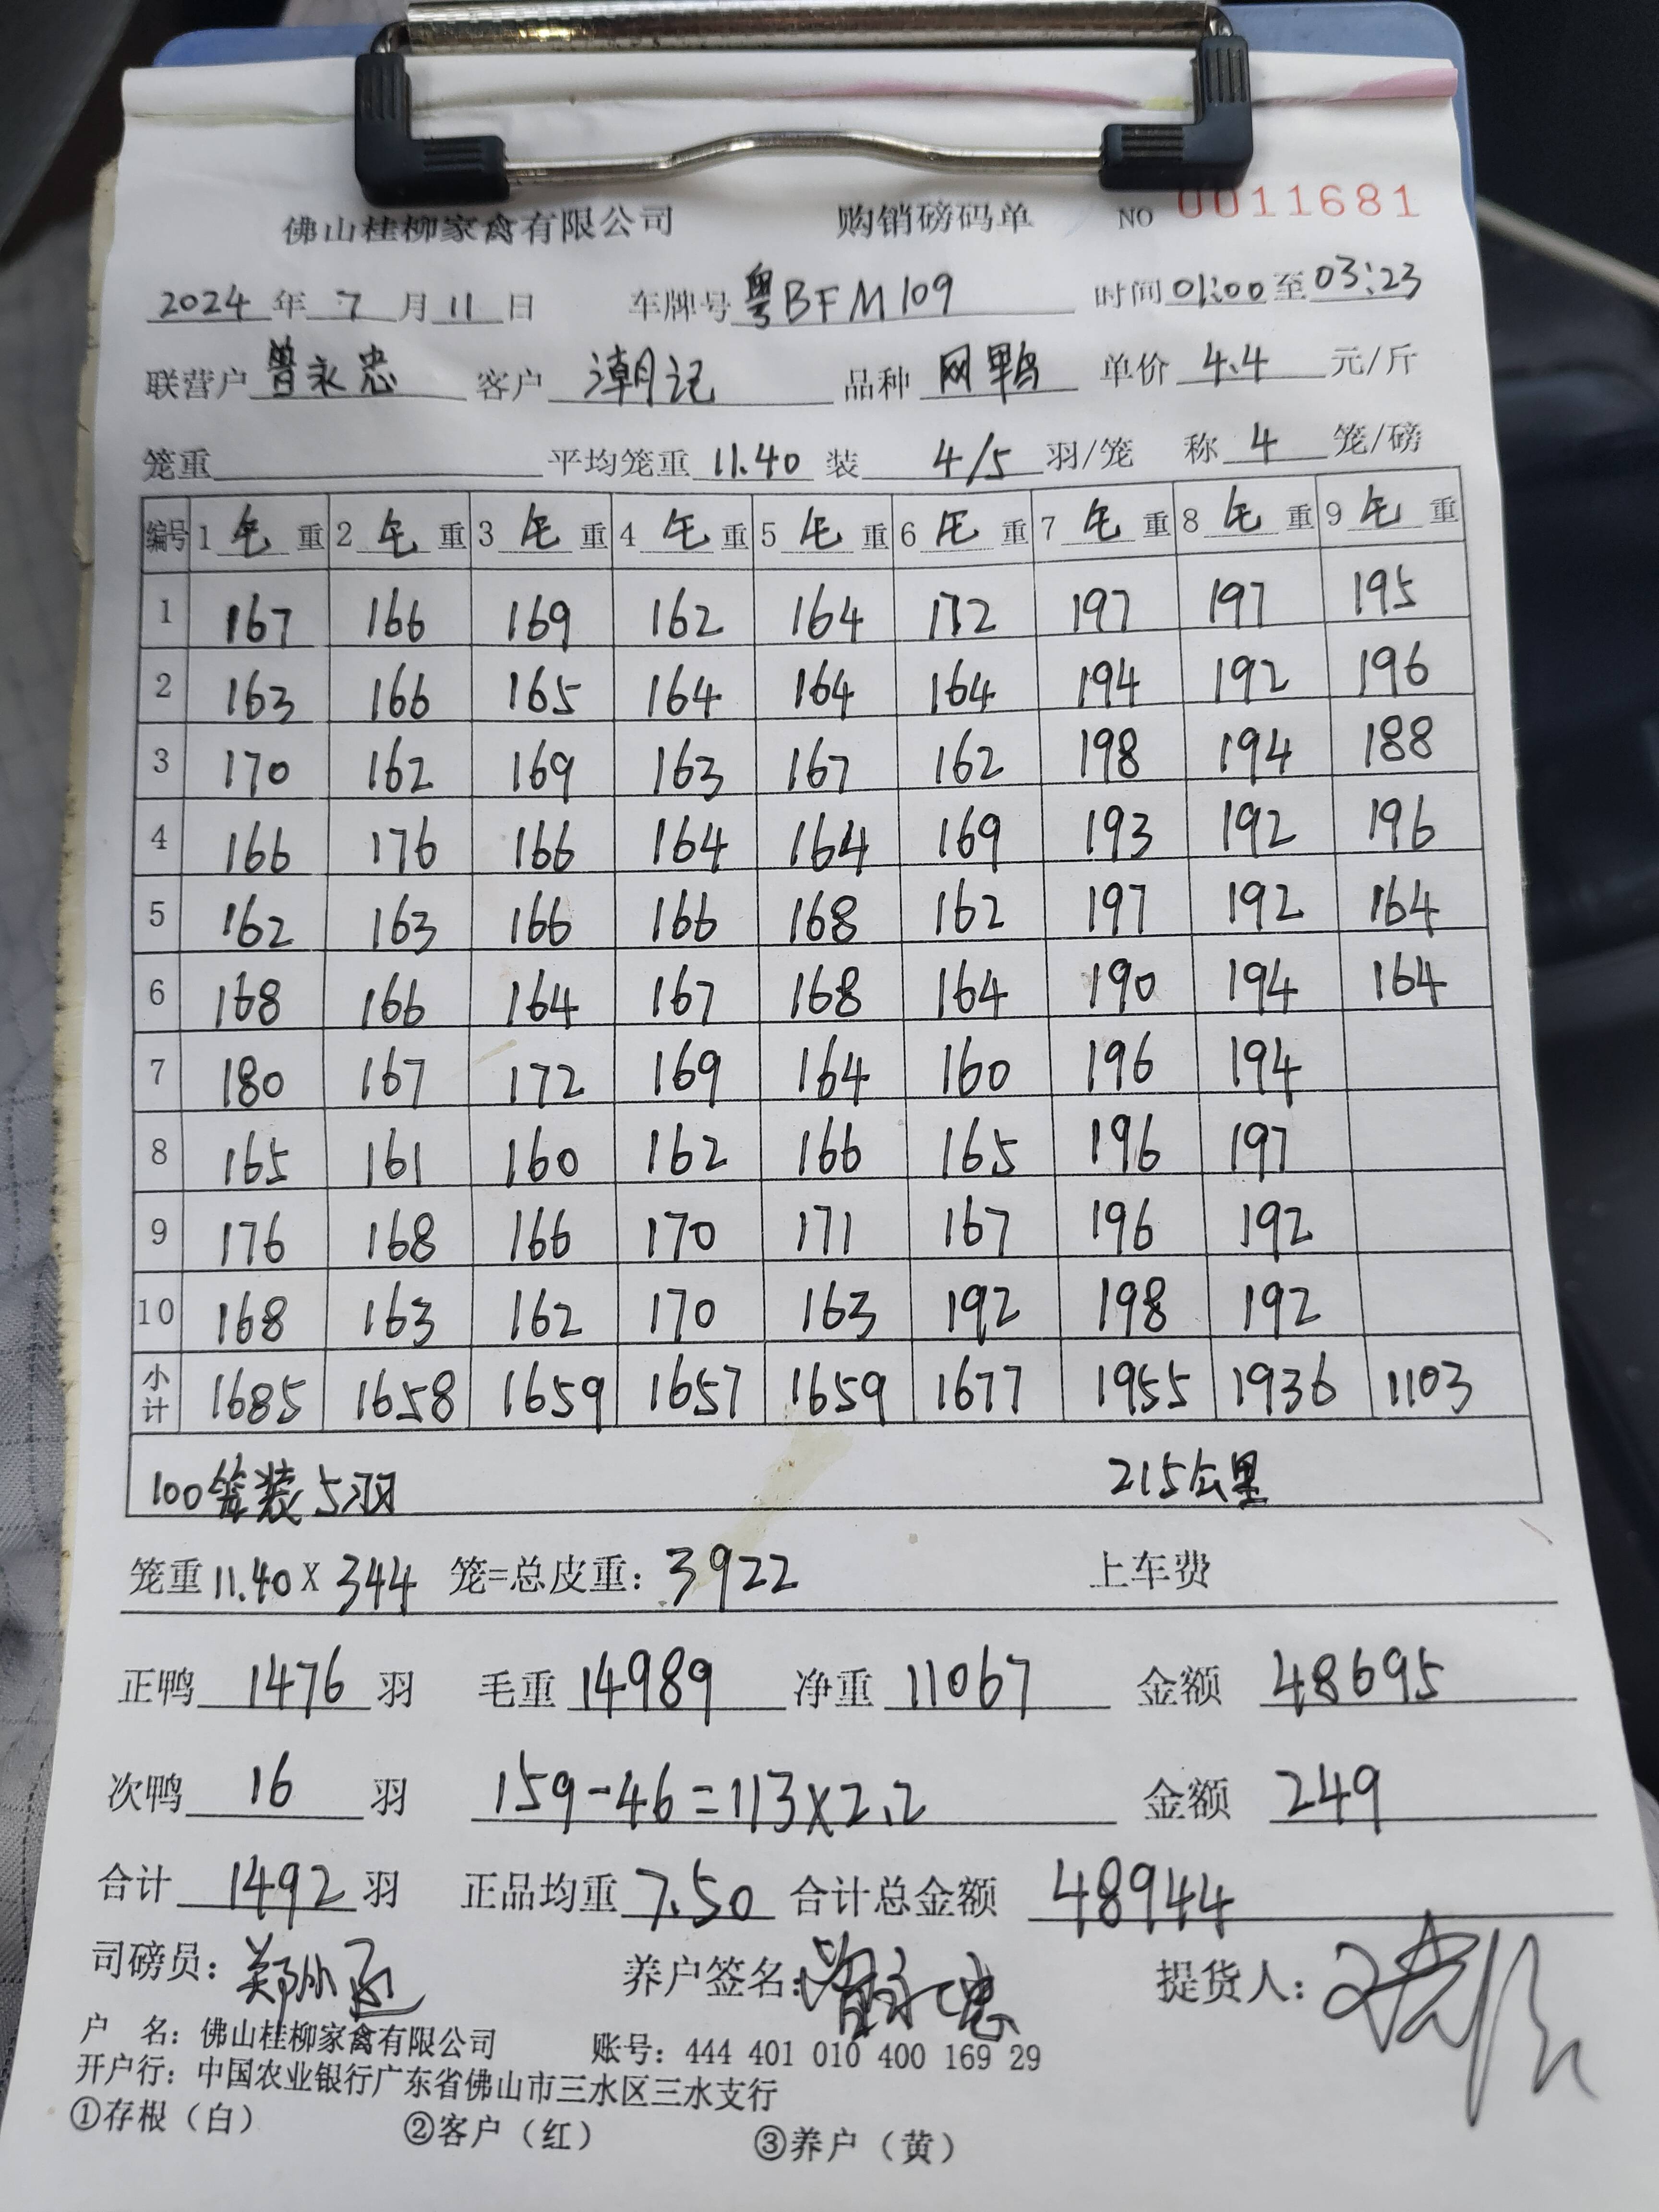 佛山桂柳家禽有限公司 购销磅码单 NO 0011681
2024年7月11日 车牌号粤BFM109 时间01:00至03:23
联营户曾永忠 客户潮记 品种网鸭 单价4.4元/斤
笼重 平均笼重11.40装4/5羽/笼 称4笼/磅
编号 1毛重 2毛重 3毛重 4毛重 5毛重 6毛重 7毛重 8毛重 9毛重
1 167 166 169 162 164 172 197 197 195
2 163 166 165 164 164 164 194 192 196
3 170 162 169 163 167 162 198 194 188
4 166 176 166 164 164 169 193 192 196
5 162 163 166 166 168 162 197 192 164
6 168 166 164 167 168 164 190 194 164
7 180 167 172 169 164 160 196 194
8 165 161 160 162 166 165 196 197
9 176 168 166 170 171 167 196 192
10 168 163 162 170 163 192 198 192
小计 1685 1658 1659 1657 1659 1677 1955 1936 1103
100笼装5羽 215公里
笼重11.40X344笼=总皮重：3922 上车费
正鸭1476羽 毛重14989 净重11067 金额48695
次鸭16羽 159-46=113×2.2 金额249
合计1492羽 正品均重7.50 合计总金额48944
司磅员： 养户签名：曾永忠 提货人：
户 名：佛山桂柳家禽有限公司 账号：444 401 010 400 169 29
开户行：中国农业银行广东省佛山市三水区三水支行
①存根（白） ②客户（红） ③养户（黄）